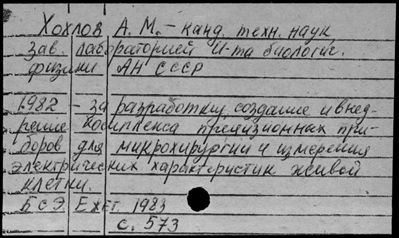 Хохлов А. М. – канд. техн. наук
зав. лабораторией И-та биологич.
физики АН СССР
1982 – за разработку, создание и внед-
рение комплекса прецизионных при-
боров для микрохирургии и измерения
электрических характеристик живой
клетки.
БСЭ Ежег. 1983
с. 573